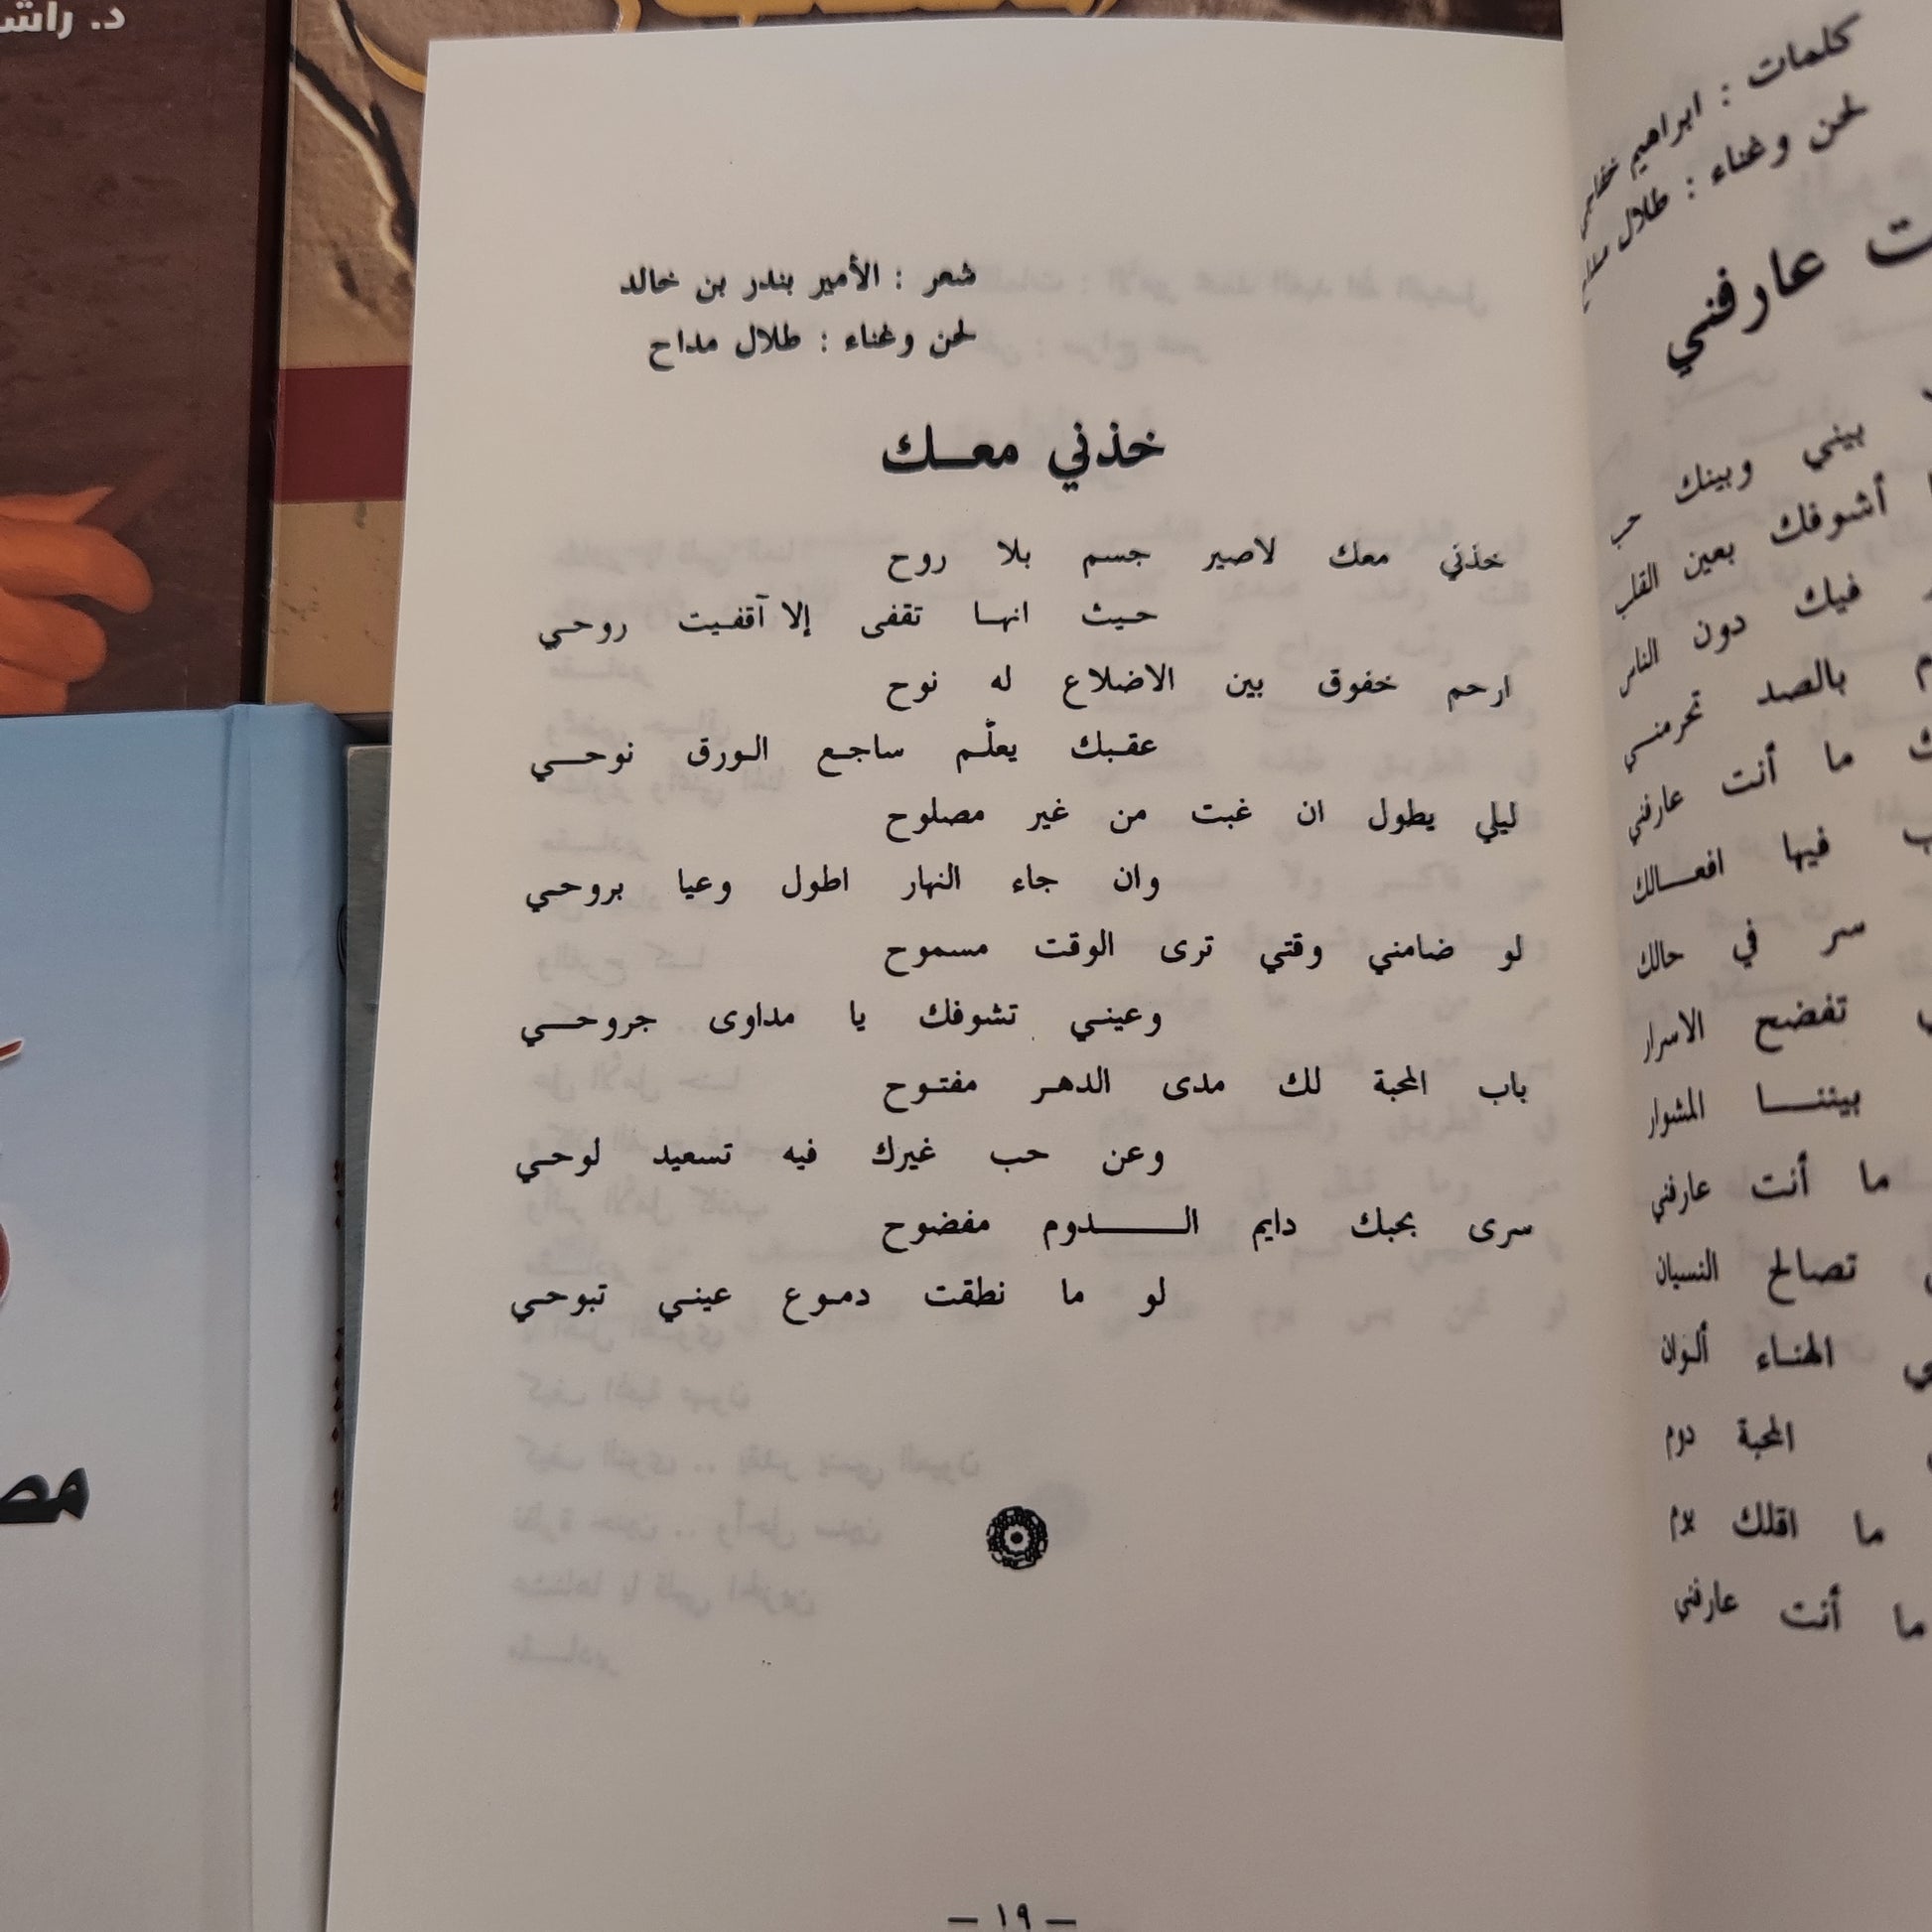 د. راشد
شعر : الأمير بندر بن خالد
لحن وغناء : طلال مداح
خذني معـــك
خذني معك لاصير جسم بلا روح
حـيث انهـا تقفى إلا آقفـيت روحـي
ارحم خفوق بين الاضلاع له نوح
عقـبك يعلّـم ساجـع الـورق نوحـــي
ليلي يطول ان غبت من غير مصلوح
وان جاء النهار اطول وعيا بروحـي
لو ضامني وقتي ترى الوقت مسموح
وعينـي تشوفك يا مداوى جروحـــي
باب المحبة لك مدى الدهـر مفتـوح
وعن حب غيرك فيه تسعيد لوحـي
سرى بحبك دايم الــــــدوم مفضوح
لو ما نطقت دمـوع عينـي تبوحـي
— ١٩ —
كلمات : ابراهيم خفاجي
لحن وغناء : طلال مداح
عارفني
بيني وبينك حب
أشـوفك بعين القلب
فيك دون الناس
بالصد تحرمنـــي
ما أنت عارفني
فيها افعـــالك
سر في حالك
تفضح الاسرار
بيننــــا المشوار
ما أنت عارفني
تصالح النسيان
الهنـاء ألـوان
المحبة دوم
ما اقلك يوم
ما أنت عارفني